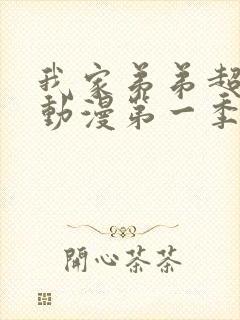 我家弟弟超
動漫第一季
開心茶茶